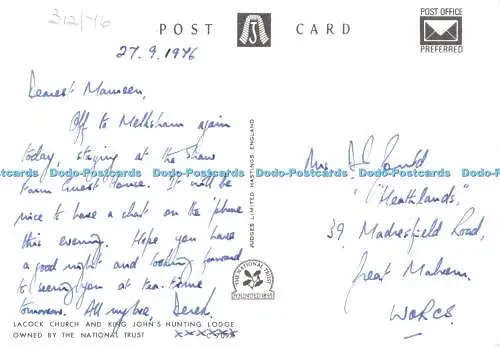 312/76
POST CARD
POST OFFICE
PREFERRED
27.9.1976
Dearest Maureen,
Off to Melksham again
today, staying at the Shaw
Farm Guest House. It will be
nice to have a chat on the 'phone
this evening. Hope you have
a good night and looking forward
to seeing you at tea-time
tomorrows. All my love, Derek.
LACOCK CHURCH AND KING JOHN'S HUNTING LODGE
OWNED BY THE NATIONAL TRUST
JUDGES LIMITED HASTINGS, ENGLAND
THE NATIONAL TRUST
FOUNDED 1895
Mrs D E Gould
"Heathlands,"
39 Madresfield Road,
Great Malvern.
WORCS.
Dodo-Postcards Dodo-Postcards Dodo-Postcards Dodo-Postcards Dodo-Postcards